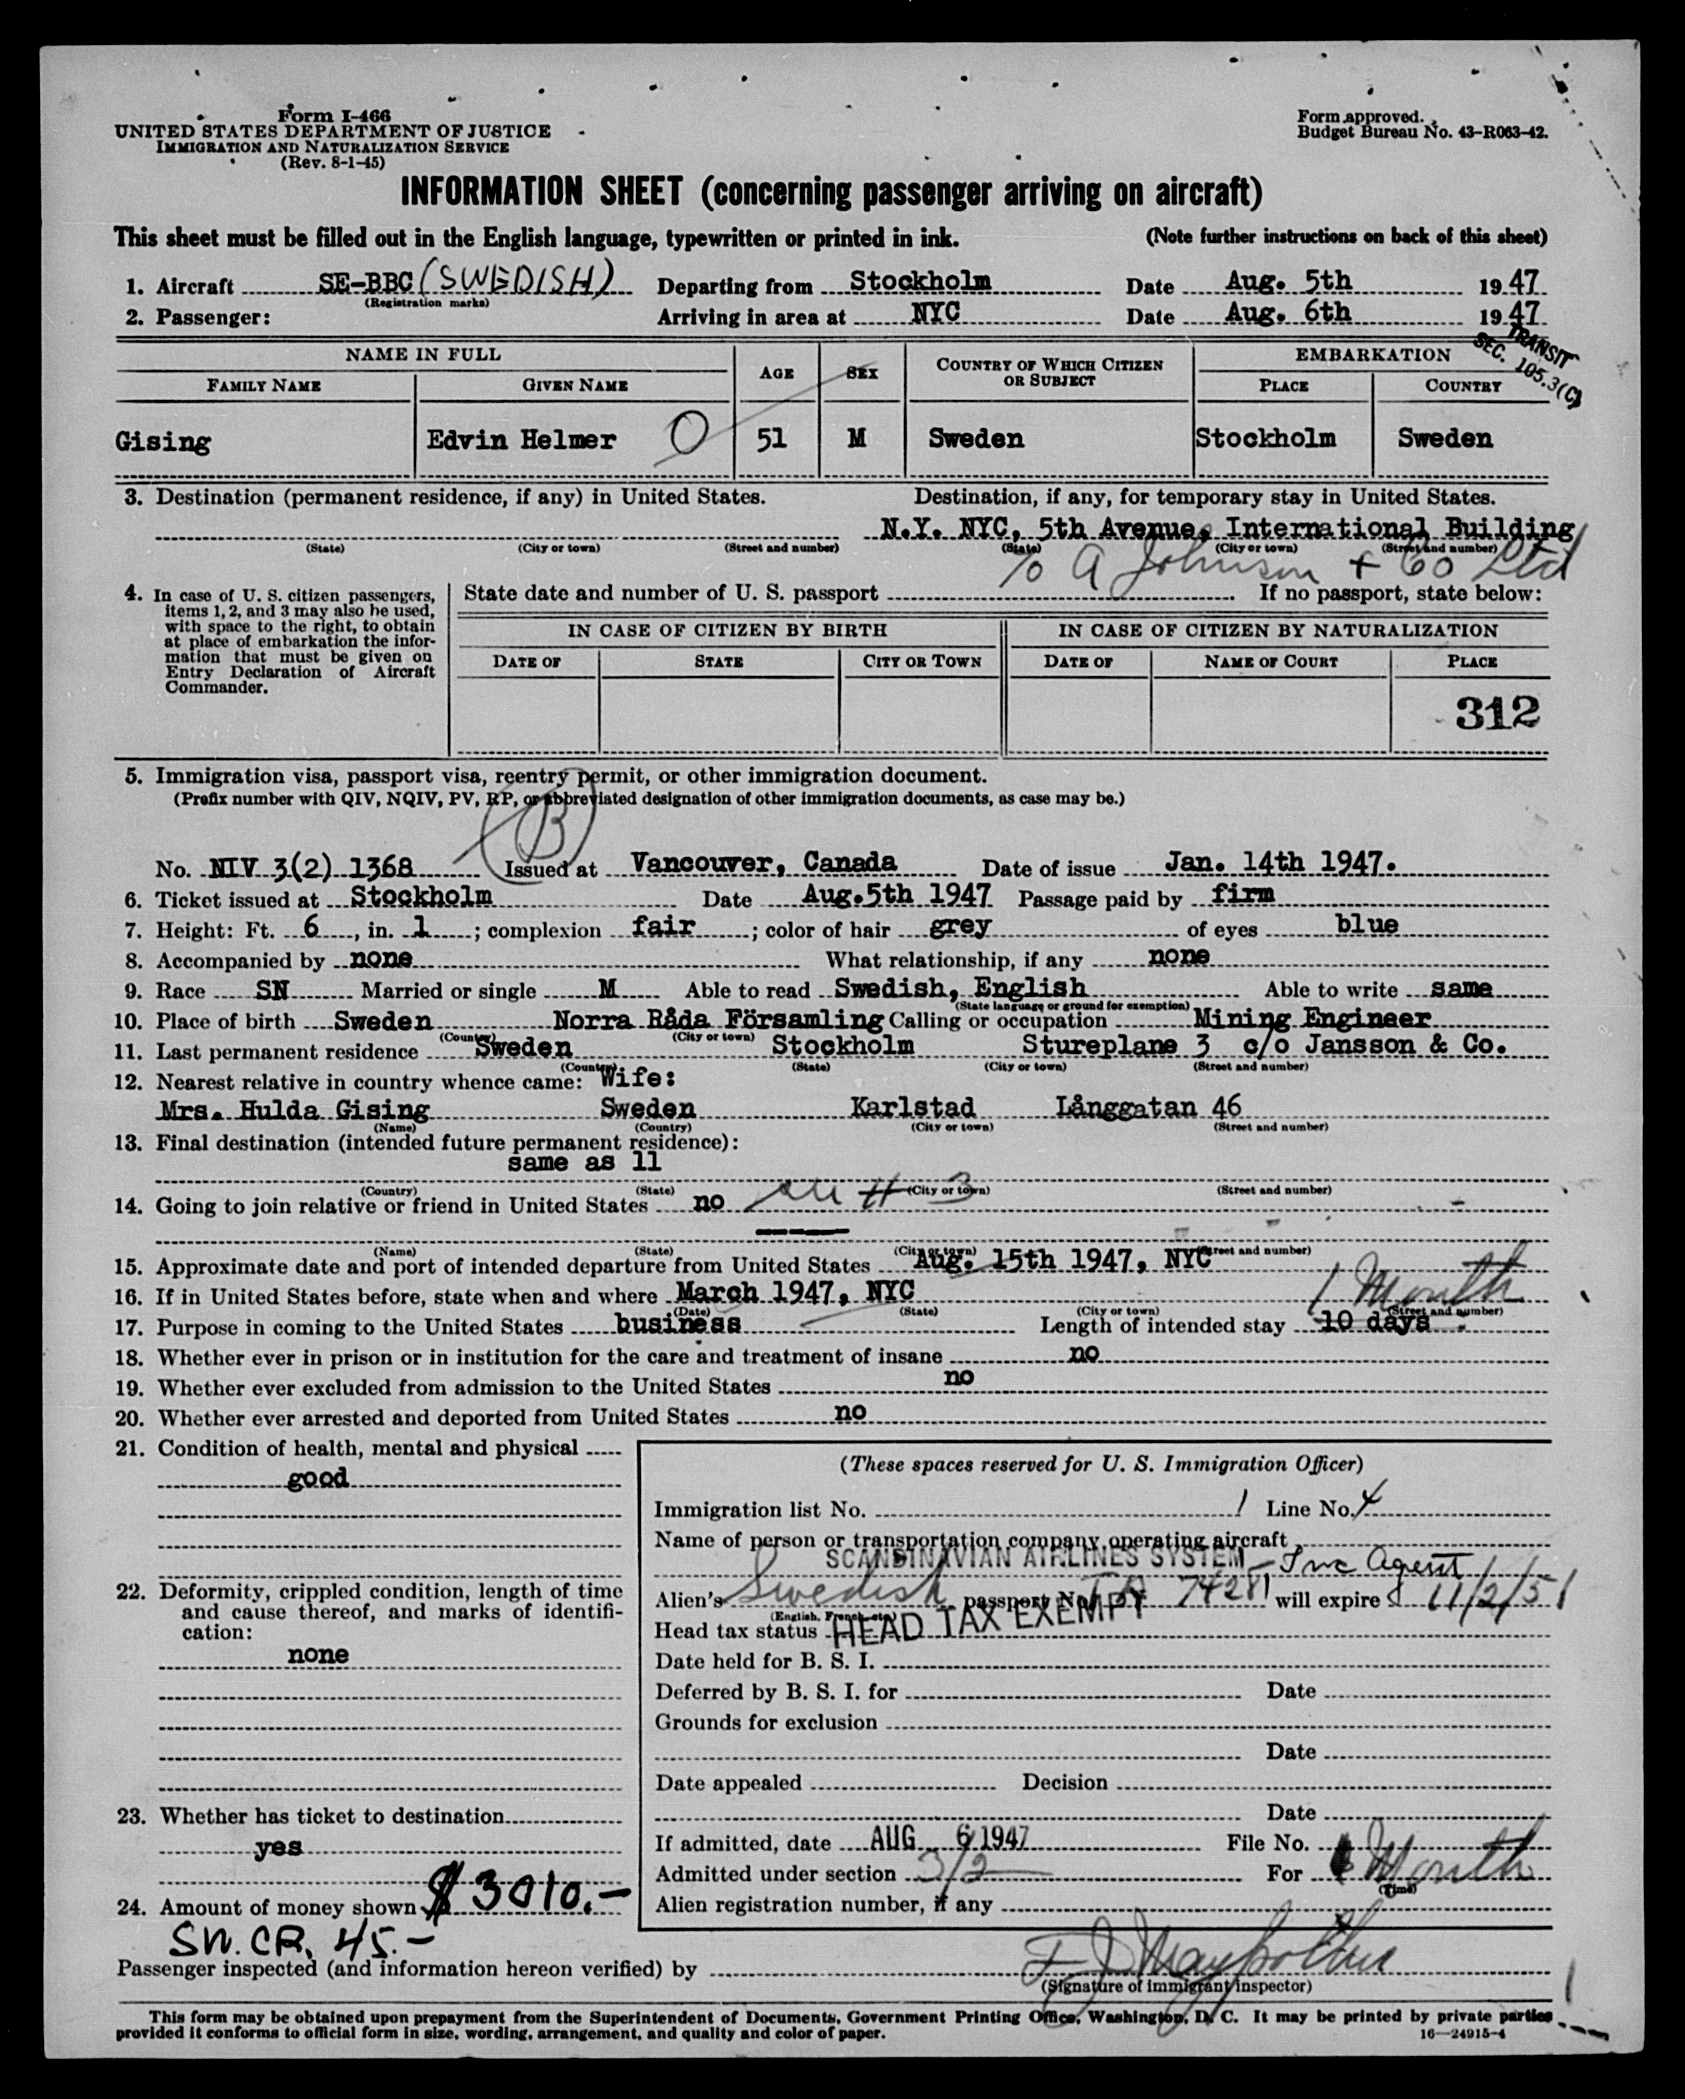 Form I-466
UNITED STATES DEPARTMENT OF JUSTICE
IMMIGRATION AND NATURALIZATION SERVICE
(Rev. 8-1-45)
Form approved.
Budget Bureau No. 43-R063-42.
INFORMATION SHEET (concerning passenger arriving on aircraft)
This sheet must be filled out in the English language, typewritten or printed in ink. (Note further instructions on back of this sheet)
1. Aircraft SE-BBC (SWEDISH) Departing from Stockholm Date Aug. 5th 1947
(Registration marks)
2. Passenger: Arriving in area at NYC Date Aug. 6th 1947
TRANSIT
SEC. 105.3(C)
NAME IN FULL AGE SEX COUNTRY OF WHICH CITIZEN OR SUBJECT EMBARKATION
FAMILY NAME GIVEN NAME PLACE COUNTRY
Gising Edvin Helmer O 51 M Sweden Stockholm Sweden
3. Destination (permanent residence, if any) in United States. Destination, if any, for temporary stay in United States.
N.Y. NYC, 5th Avenue, International Building
(State) (City or town) (Street and number) (State) (City or town) (Street and number)
c/o A Johnson + Co Ltd
4. In case of U. S. citizen passengers, items 1, 2, and 3 may also be used, with space to the right, to obtain at place of embarkation the information that must be given on Entry Declaration of Aircraft Commander.
State date and number of U. S. passport If no passport, state below:
IN CASE OF CITIZEN BY BIRTH IN CASE OF CITIZEN BY NATURALIZATION
DATE OF STATE CITY OR TOWN DATE OF NAME OF COURT PLACE
312
5. Immigration visa, passport visa, reentry permit, or other immigration document.
(Prefix number with QIV, NQIV, PV, RP, or abbreviated designation of other immigration documents, as case may be.)
B
No. NIV 3(2) 1368 Issued at Vancouver, Canada Date of issue Jan. 14th 1947.
6. Ticket issued at Stockholm Date Aug.5th 1947 Passage paid by firm
7. Height: Ft. 6, in. 1; complexion fair; color of hair grey of eyes blue
8. Accompanied by none What relationship, if any none
9. Race SN Married or single M Able to read Swedish, English Able to write same
(State language or ground for exemption)
10. Place of birth Sweden Norra Råda Församling Calling or occupation Mining Engineer
(Country) (City or town)
11. Last permanent residence Sweden Stockholm Stureplane 3 c/o Jansson & Co.
(Country) (State) (City or town) (Street and number)
12. Nearest relative in country whence came: Wife:
Mrs. Hulda Gising Sweden Karlstad Långgatan 46
(Name) (Country) (City or town) (Street and number)
13. Final destination (intended future permanent residence):
same as 11
(Country) (State) (City or town) (Street and number)
14. Going to join relative or friend in United States no see # 3
(Name) (State) (City or town) (Street and number)
15. Approximate date and port of intended departure from United States Aug. 15th 1947, NYC
16. If in United States before, state when and where March 1947, NYC 1 Month
(Date) (State) (City or town) (Street and number)
17. Purpose in coming to the United States business Length of intended stay 10 days
18. Whether ever in prison or in institution for the care and treatment of insane no
19. Whether ever excluded from admission to the United States no
20. Whether ever arrested and deported from United States no
21. Condition of health, mental and physical
good
22. Deformity, crippled condition, length of time and cause thereof, and marks of identification:
none
23. Whether has ticket to destination
yes
24. Amount of money shown $ 3010.-
SW. CR. 45.-
(These spaces reserved for U. S. Immigration Officer)
Immigration list No. 1 Line No. 4
Name of person or transportation company operating aircraft
SCANDINAVIAN AIRLINES SYSTEM - Inc Agent
Alien's Swedish passport No. 74281 will expire 11/2/51
(English, French, etc.)
Head tax status HEAD TAX EXEMPT
Date held for B. S. I.
Deferred by B. S. I. for Date
Grounds for exclusion
Date
Date appealed Decision
Date
If admitted, date AUG 6 1947 File No.
Admitted under section 3/2 For 1 Month
(Time)
Alien registration number, if any
Passenger inspected (and information hereon verified) by
(Signature of immigrant inspector)
This form may be obtained upon prepayment from the Superintendent of Documents, Government Printing Office, Washington, D. C. It may be printed by private parties
provided it conforms to official form in size, wording, arrangement, and quality and color of paper. 16—24915-4